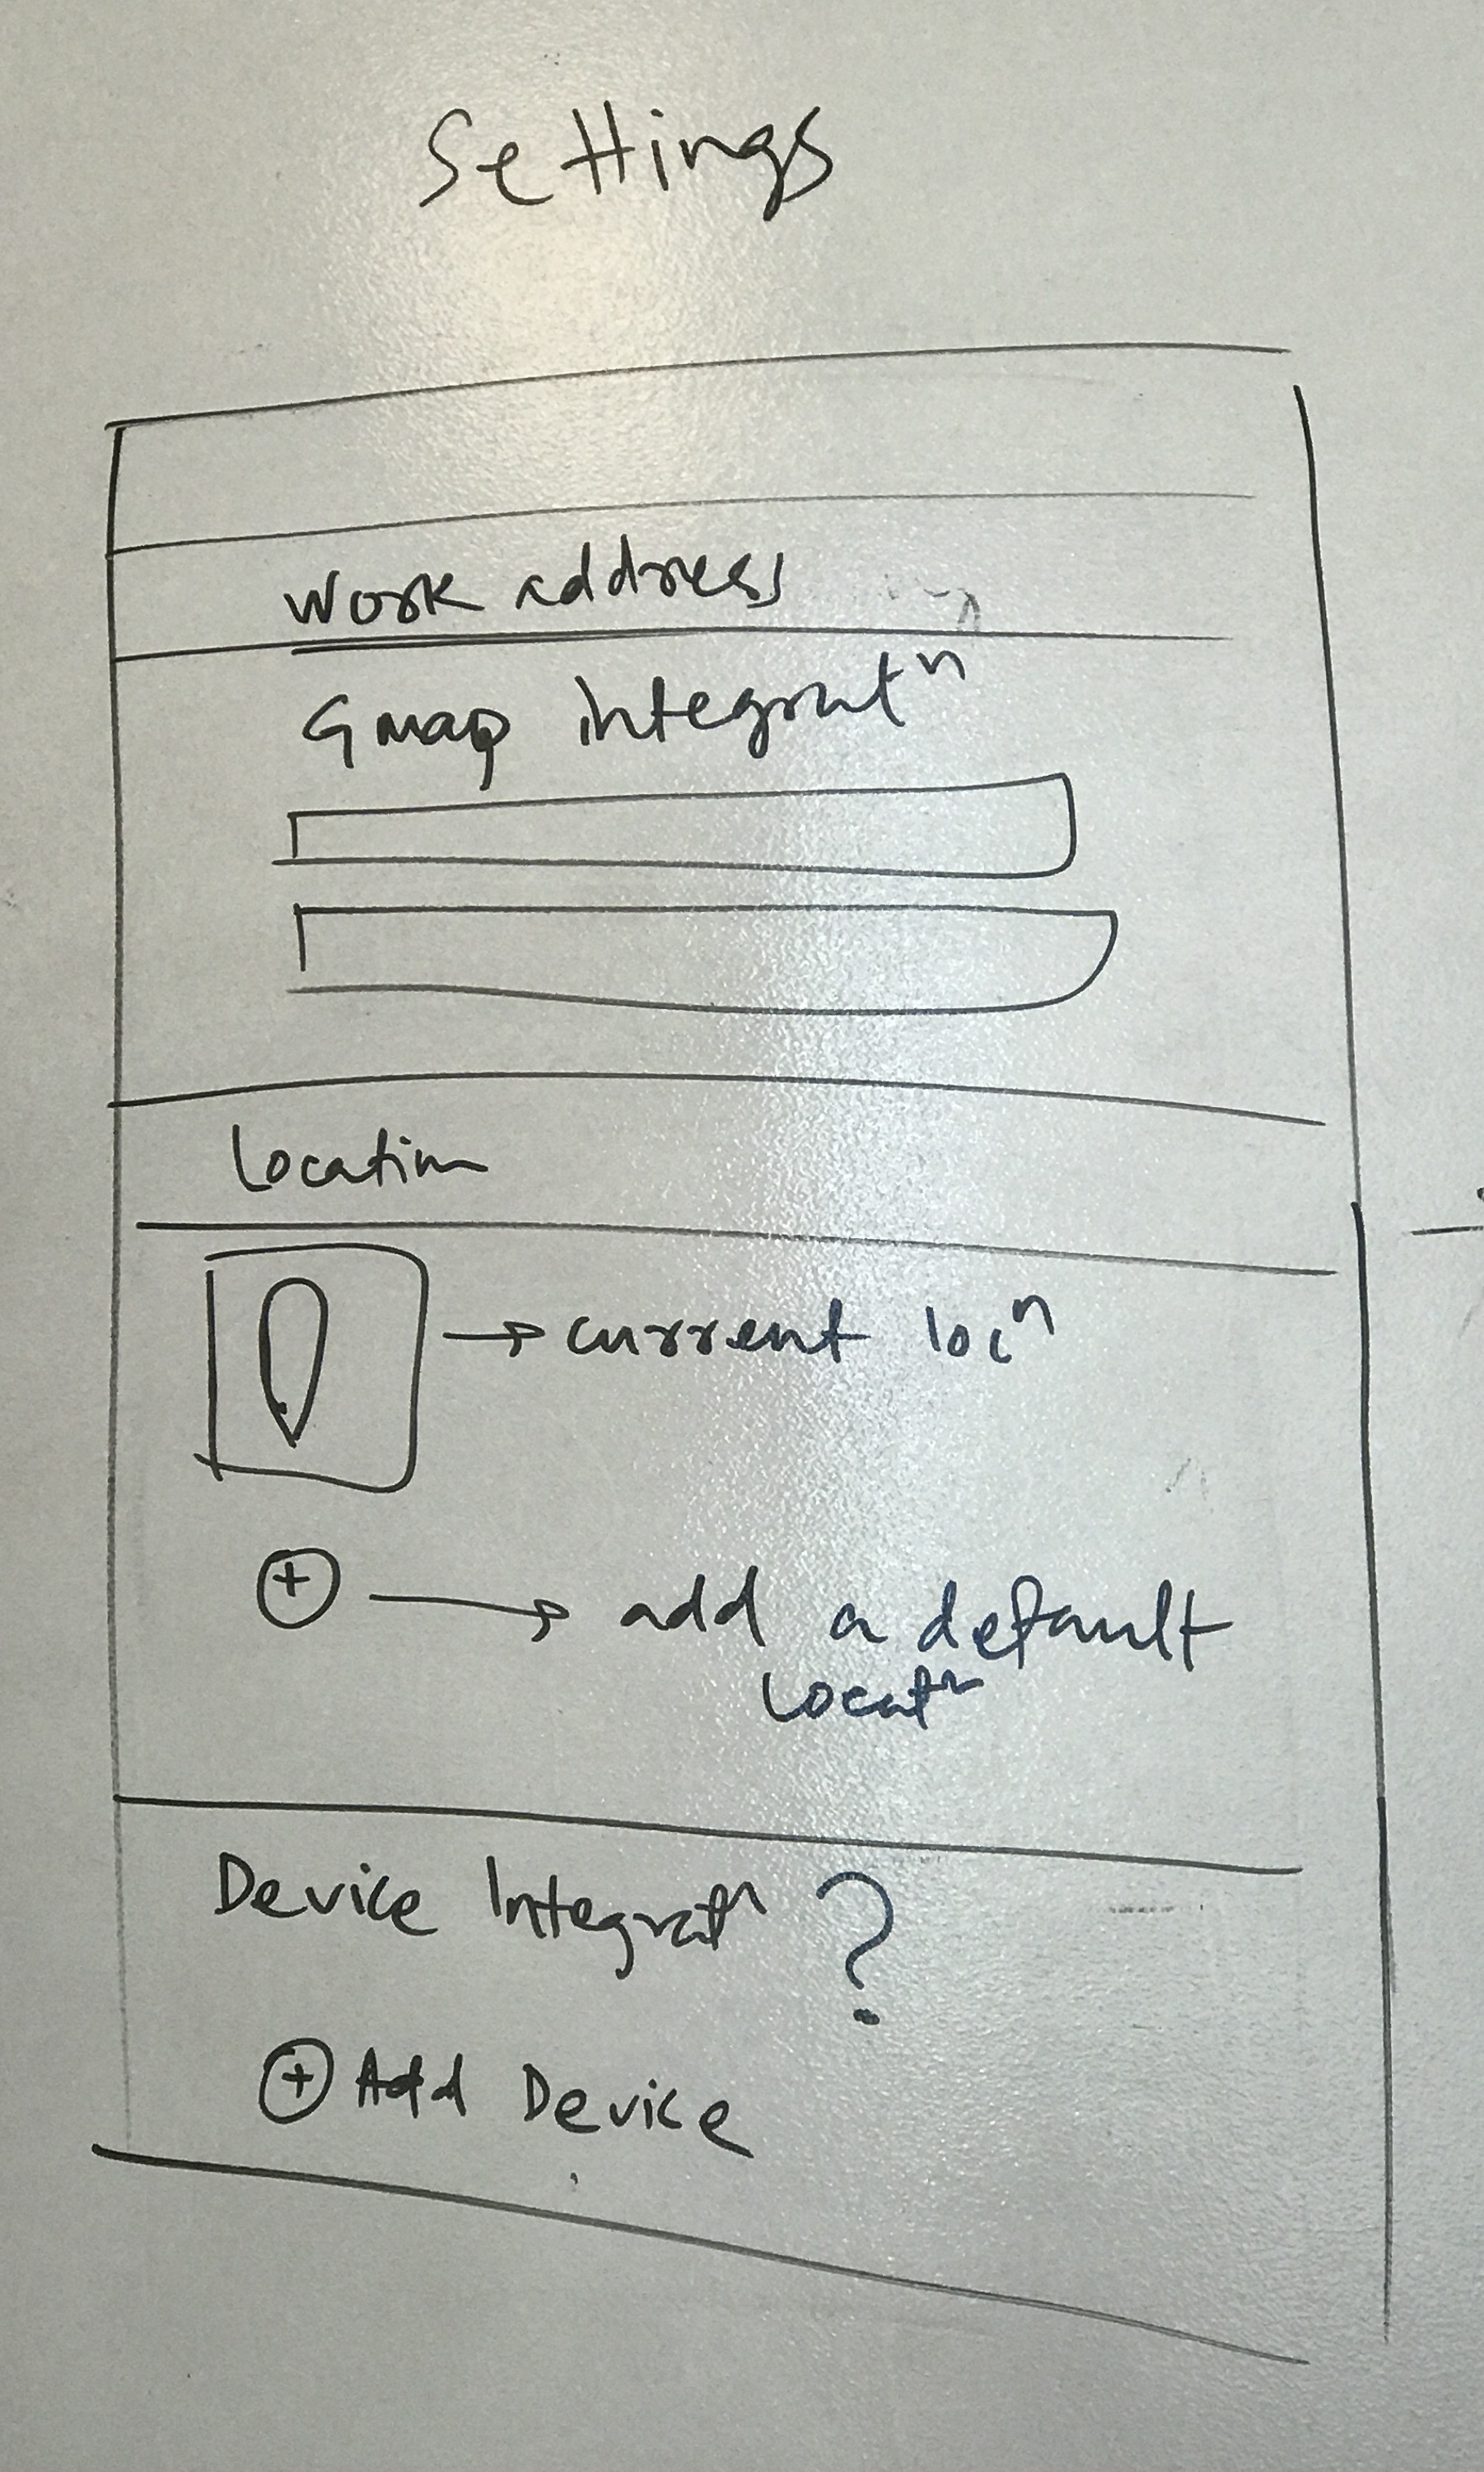 Settings
Work address
Gmap integratⁿ
Location
→ current locⁿ
+ → add a default
locatⁿ
Device Integratⁿ ?
+ Add Device